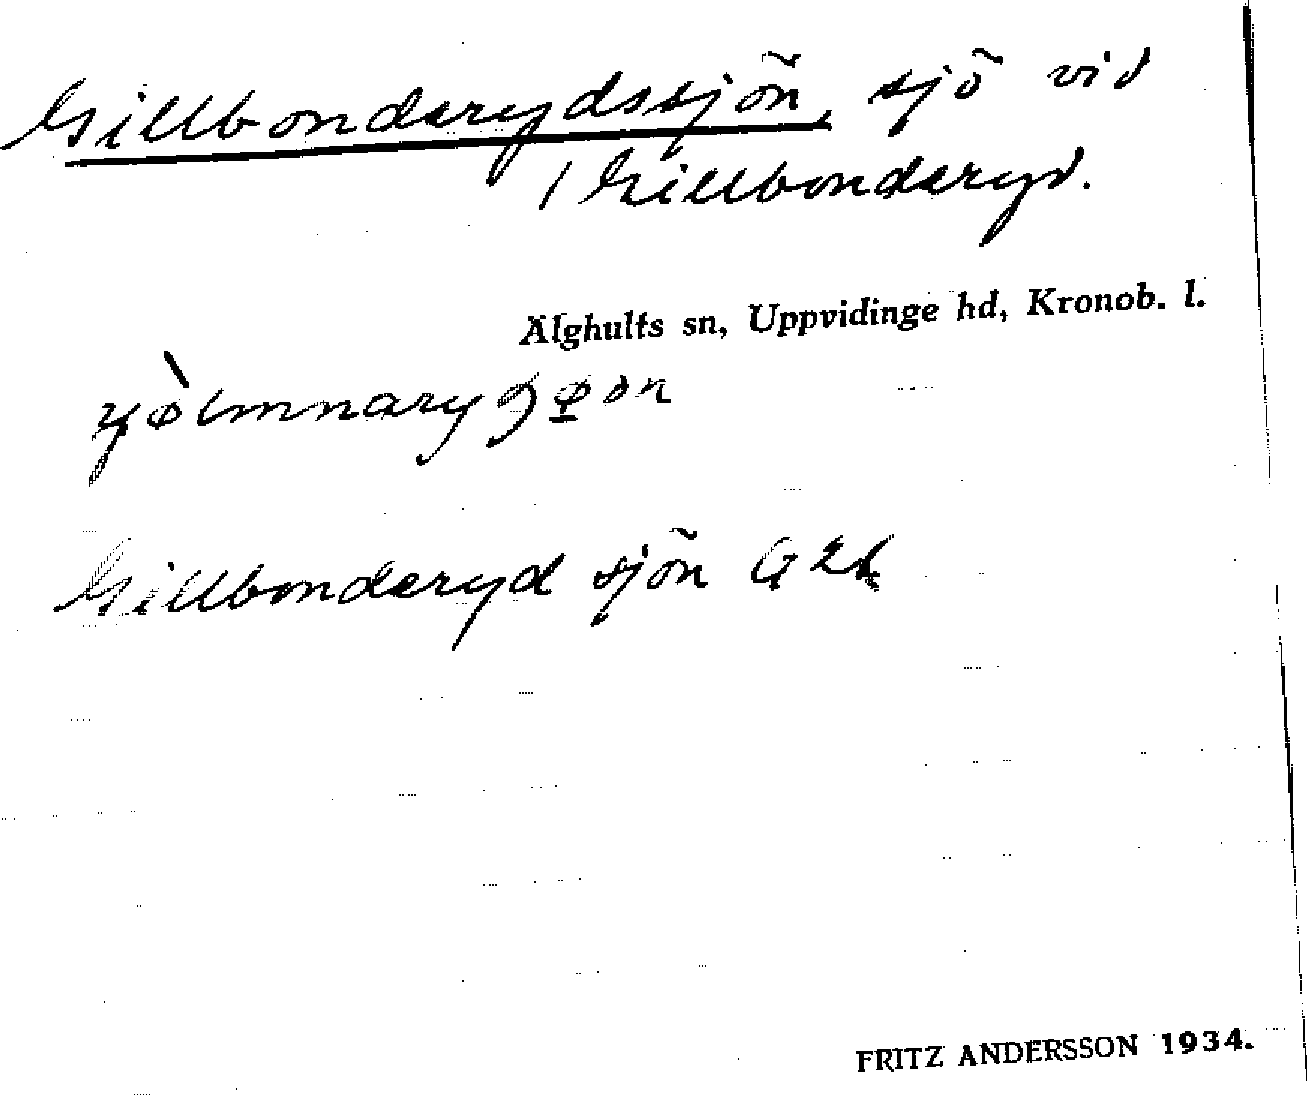 Gillbonderydssjön, sjö vid
/ Gillbonderyd.
Älghults sn, Uppvidinge hd, Kronob. l.
Gillbonderyd sjön
FRITZ ANDERSSON 1934.